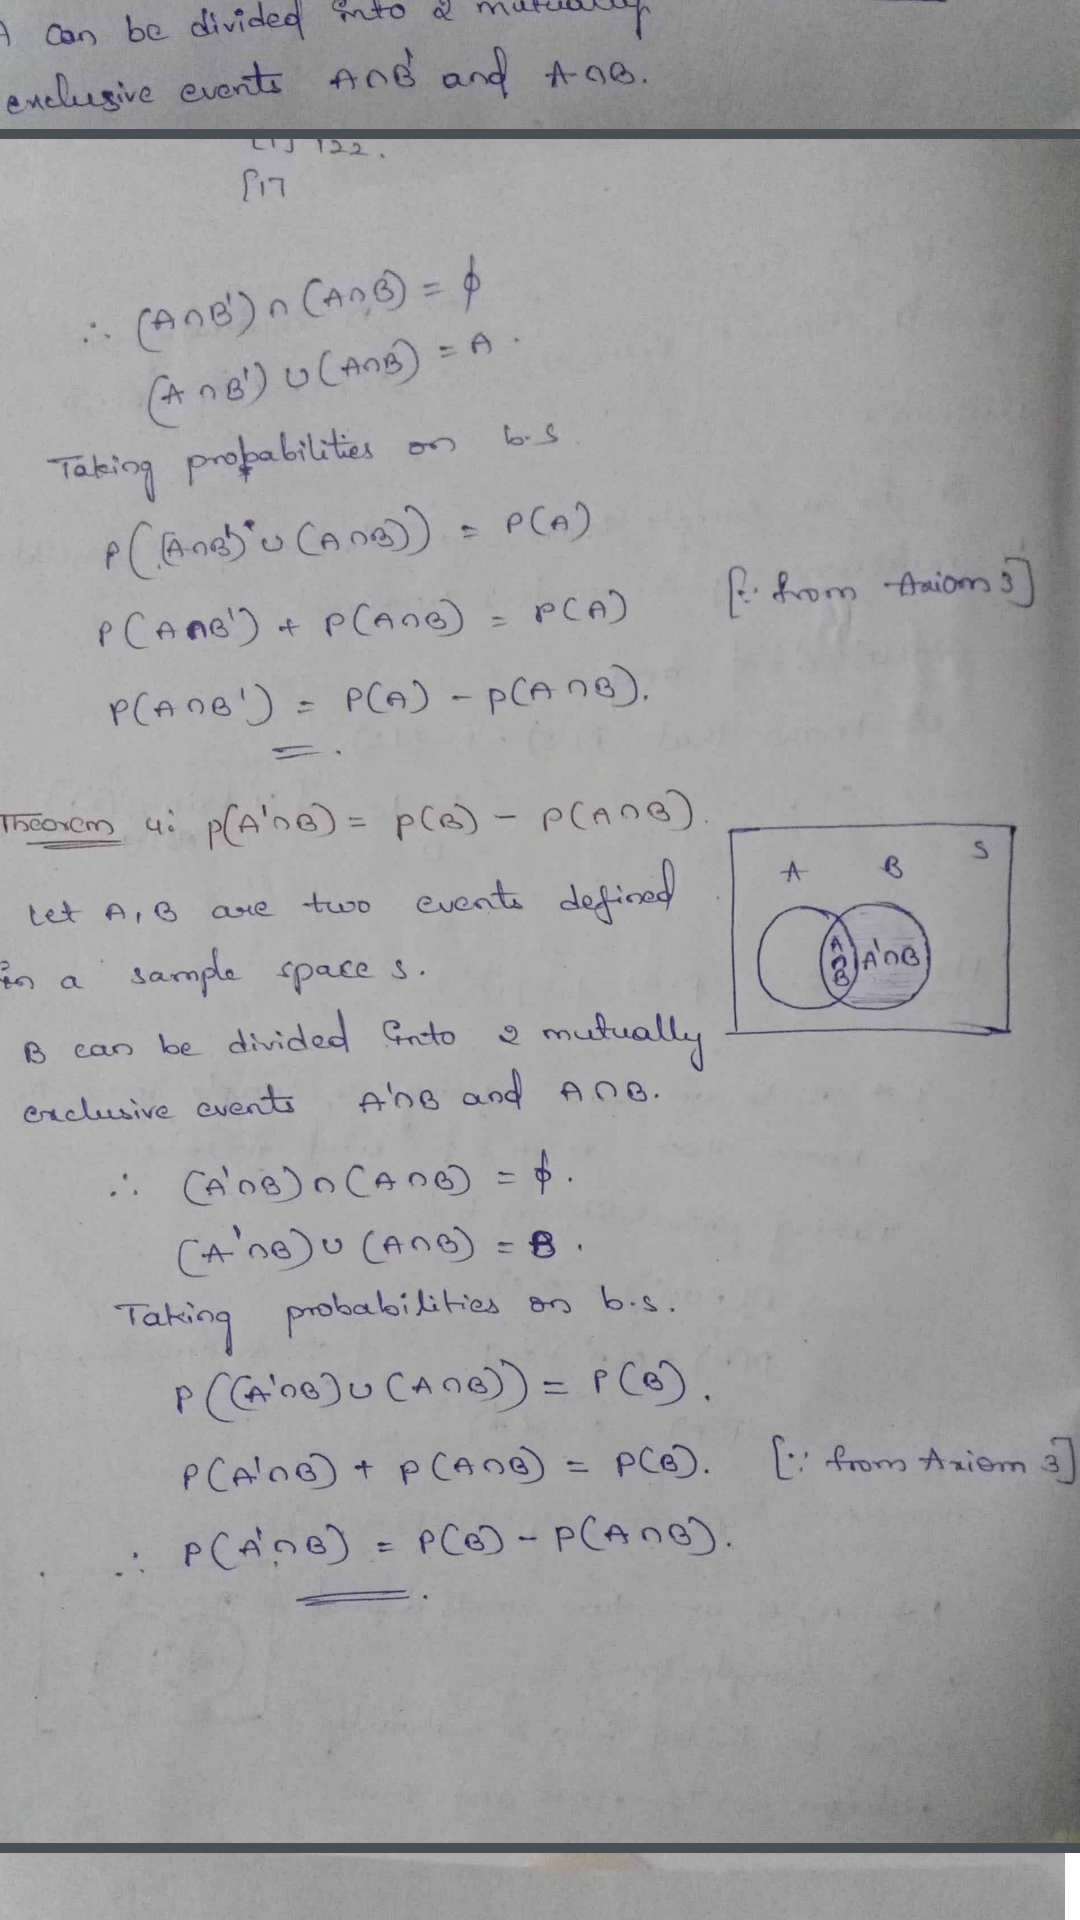 A can be divided into 2 mutually
exclusive events A∩B' and A∩B.
122.
∴ (A∩B')∩(A∩B) = ϕ
(A∩B')∪(A∩B) = A.
Taking probabilities on b.s
P((A∩B')∪(A∩B)) = P(A)
P(A∩B') + P(A∩B) = P(A) [∵ from Axiom 3]
P(A∩B') = P(A) - P(A∩B).
Theorem 4: P(A'∩B) = P(B) - P(A∩B).
Let A, B are two events defined
in a sample space S.
B can be divided into 2 mutually
exclusive events A'∩B and A∩B.
A B S
A∩B A'∩B
∴ (A'∩B)∩(A∩B) = ϕ.
(A'∩B)∪(A∩B) = B.
Taking probabilities on b.s.
P((A'∩B)∪(A∩B)) = P(B).
P(A'∩B) + P(A∩B) = P(B). [∵ from Axiom 3]
∴ P(A'∩B) = P(B) - P(A∩B).